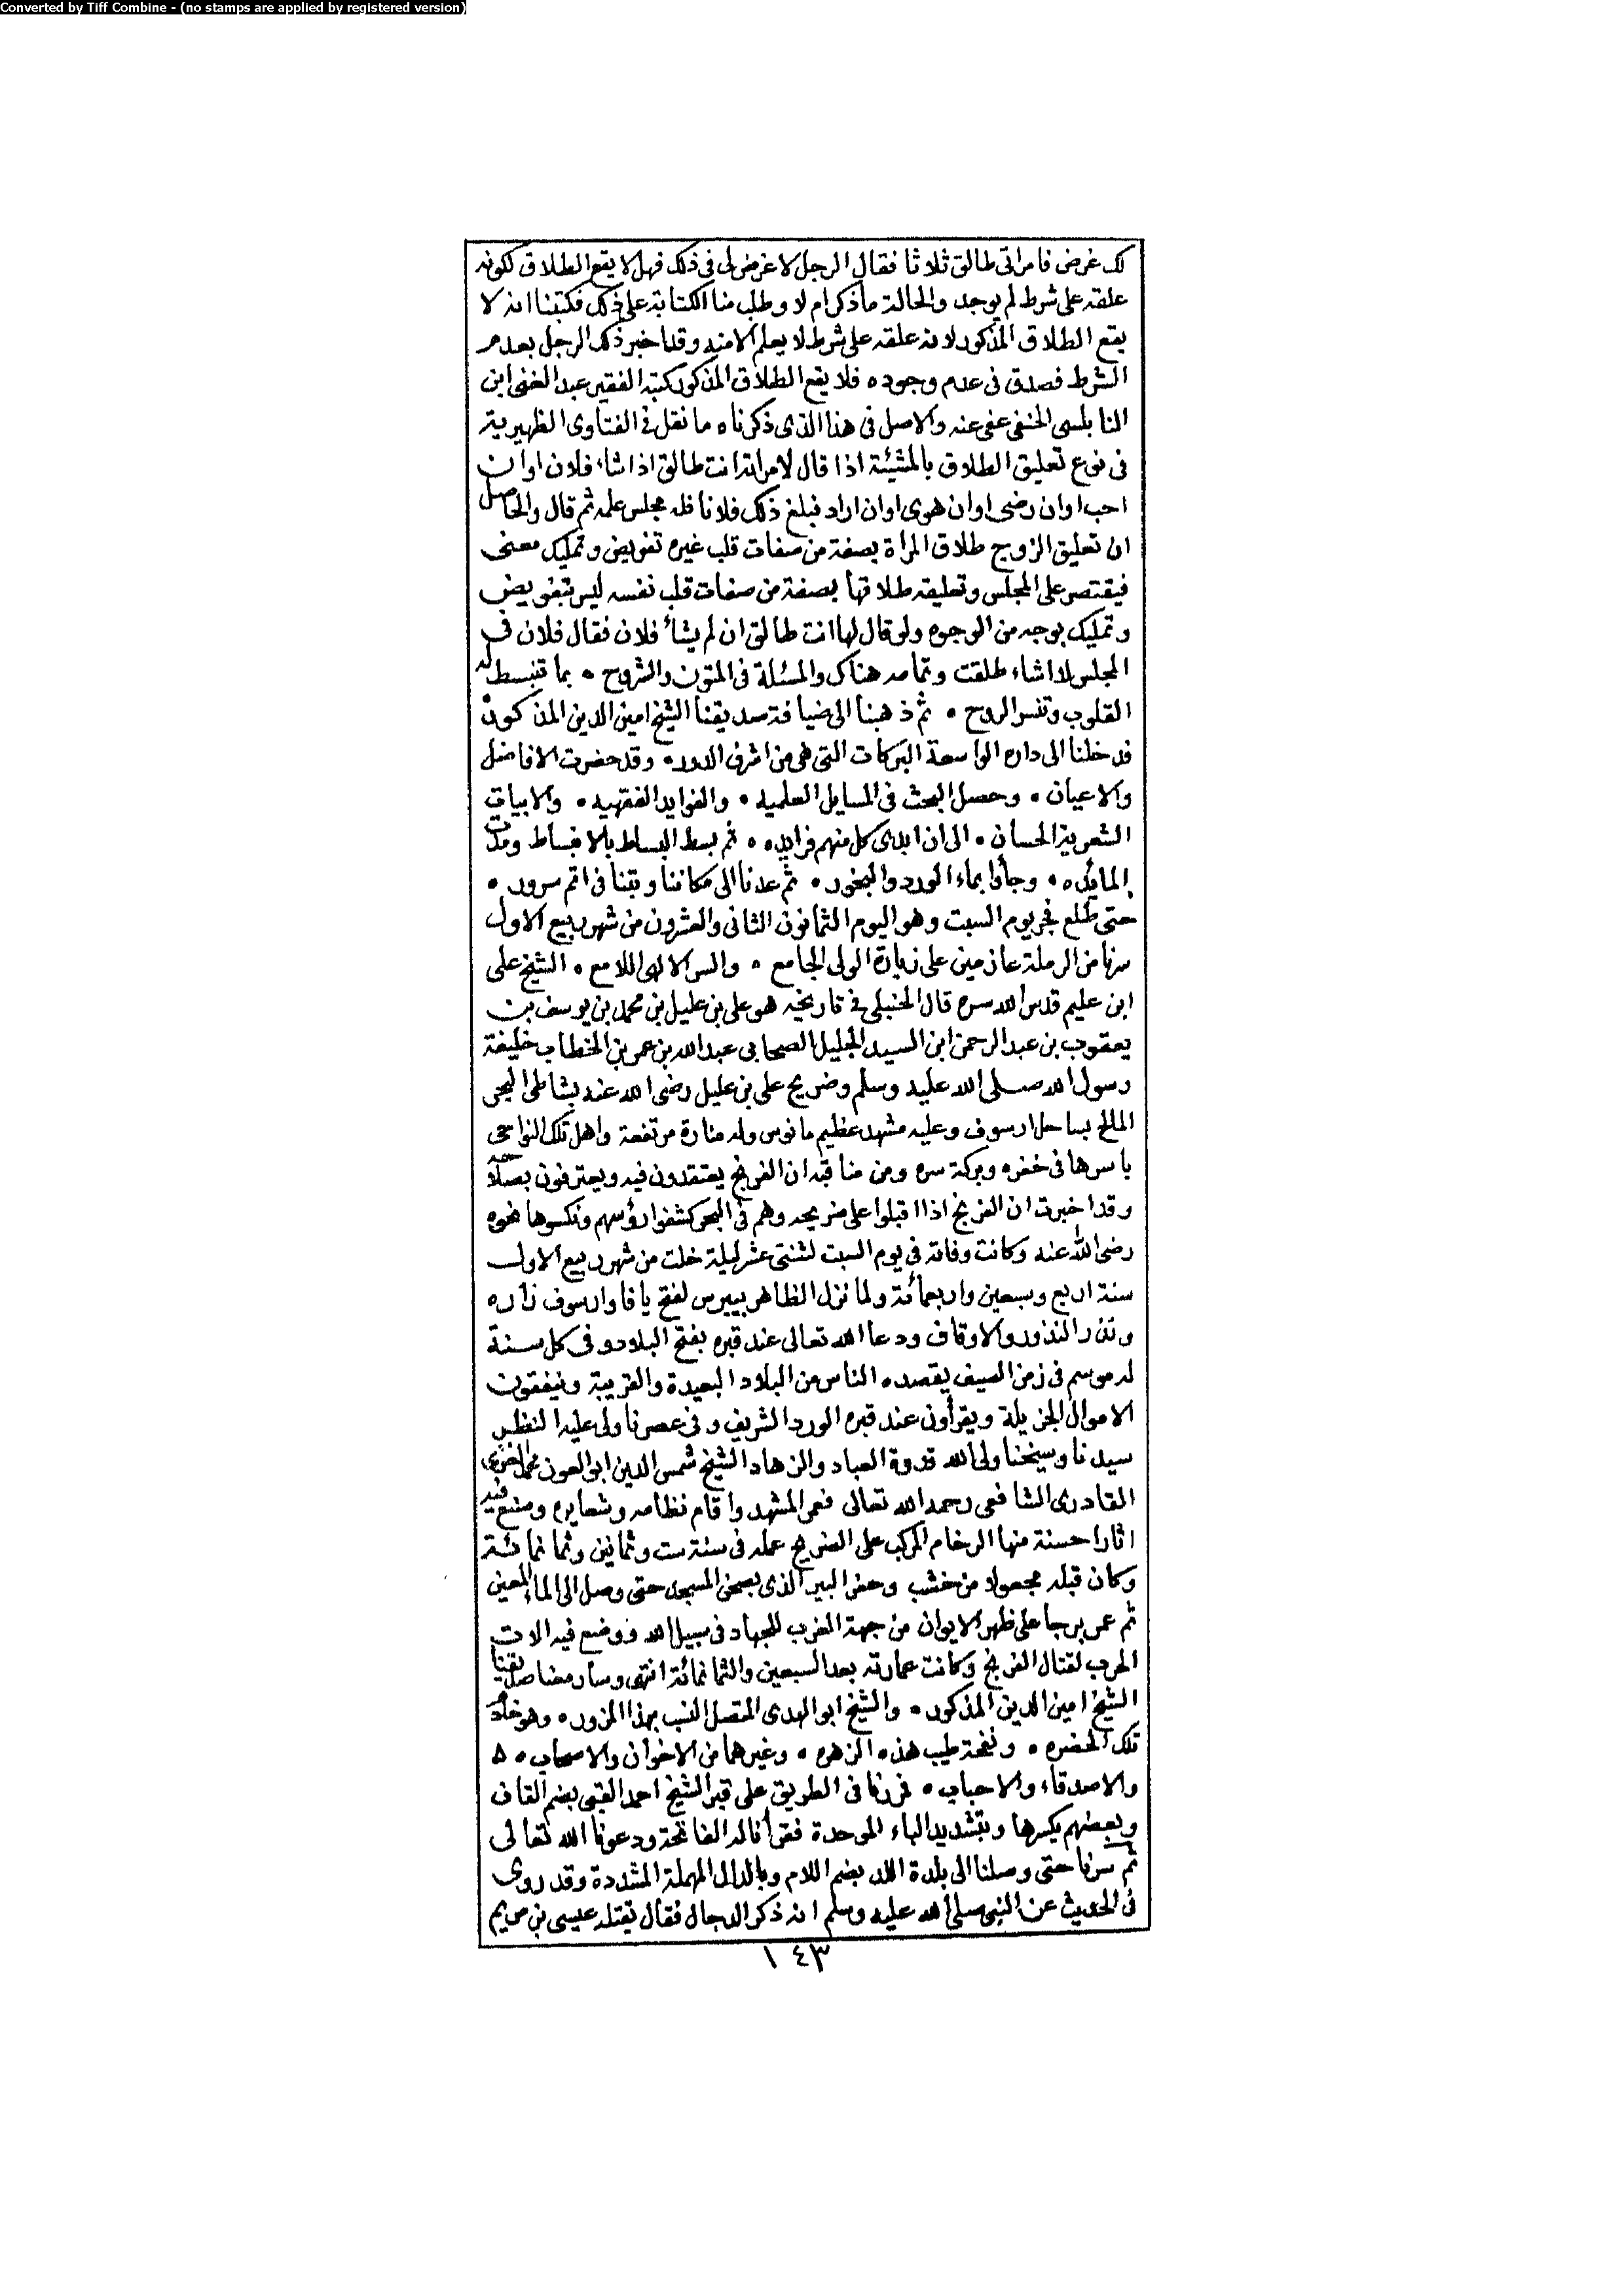 Converted by Tiff Combine - (no stamps are applied by registered version)
لك غرض فامراتى طالق ثلاثا فقال الرجل لا غرض لى فى ذلك فهل لا يقع الطلاق لكونه
علقه على شرط لم يوجد والحالة ما ذكر ام لا وطلب منا الكتابة على ذلك فكتبنا انه لا
يقع الطلاق المذكور لانه علقه على شرط لا يعلم الا منه وقد اخبر ذلك الرجل بعدم
الشرط فصدق فى عدم وجوده فلا يقع الطلاق المذكور كتبه الفقير عبد الغنى ابن
النابلسى الحنفى عفى عنه والاصل فى هذا الذى ذكرناه ما نقل فى الفتاوى الظهيرية
فى نوع تعليق الطلاق بالمشيئة اذا قال لامراته انت طالق اذا شاء فلان او ان
احب او ان رضى او ان هوى او ان اراد فبلغ ذلك فلانا فله مجلس علمه ثم قال والحاصل
ان تعليق الزوج طلاق المراة بصفة من صفات قلب غيره تفويض وتمليك معنى
فيقتصر على المجلس وتعليقه طلاقها بصفة من صفات قلب نفسه ليس بتفويض
وتمليك بوجه من الوجوه ولو قال لها انت طالق ان لم يشأ فلان فقال فلان فى
المجلس لا اشاء طلقت وتمامه هناك والمسئلة فى المتون والشروح ٥ بما تنبسط له
القلوب وتسر الروح ٥ ثم ذهبنا الى ضيافة صديقنا الشيخ امين الدين المذكور ٥
فدخلنا الى داره الواسعة البركات التى هى من اشرف الدور ٥ وقد حضرت الافاضل
والاعيان ٥ وحصل البحث فى المسايل العلميه ٥ والفوايد الفقهيه ٥ والابيات
الشعرية الحسان ٥ الى ان ابدى كل منهم فرايده ٥ ثم بسط البساط بالانبساط ومدت
المائده ٥ وجاؤا بماء الورد والبخور ٥ ثم عدنا الى مكاننا وبتنا فى اتم سرور ٥
حتى طلع فجر يوم السبت وهو اليوم الثمانون الثانى والعشرون من شهر ربيع الاول
سرنا من الرملة عازمين على زيارة الولى الجامع ٥ والسر الالهى اللامع ٥ الشيخ على
ابن عليم قدس الله سره قال الحنبلى فى تاريخه هو على بن عليل بن محمد بن يوسف بن
يعقوب بن عبد الرحمن ابن السيد الجليل الصحابى عبد الله بن عمر بن الخطاب خليفة
رسول الله صلى الله عليه وسلم وضريح على بن عليل رضى الله عنه بشاطى البحر
المالح بساحل ارسوف وعليه مشهد عظيم مانوس وله منارة مرتفعة واهل تلك النواحى
باسرها فى خفره وبركة سره ومن مناقبه ان الفرنج يعتقدون فيه ويعترفون بصلاحه
وقد اخبرت ان الفرنج اذا اقبلوا على ضريحه وهم فى البحر كشفوا رؤسهم ونكسوها نحوه
رضى الله عنه وكانت وفاته فى يوم السبت لثنتى عشر ليلة خلت من شهر ربيع الاول
سنة اربع وسبعين واربعمائة ولما نزل الظاهر بيبرس لفتح يافا وارسوف زاره
ونذر النذور والاوقاف ودعا الله تعالى عند قبره بفتح البلاد وفى كل سنة
له موسم فى زمن الصيف يقصده الناس من البلاد البعيدة والقريبة وينفقون
الاموال الجزيلة ويقرأون عند قبره الورد الشريف وفى عصرنا ولى عليه النظر
سيدنا وشيخنا ولى الله قدوة العباد والزهاد الشيخ شمس الدين ابو العون محمد الغزى
القادرى الشافعى رحمه الله تعالى فعمر المشهد واقام نظامه وشعايره وصنع فيه
اثارا حسنة منها الرخام المركب على الضريح عمله فى سنة ست وثمانين وثمانمائة
وكان قبله مجعولا من خشب وحفر البير الذى بصحن المسجد حتى وصل الى الماء المعين
ثم عمر برجا على ظهر الايوان من جهة الغرب للجهاد فى سبيل الله ووضع فيه الات
الحرب لقتال الفرنج وكانت عمارته بعد السبعين والثمانمائة انتهى وسار معنا صديقنا
الشيخ امين الدين المذكور ٥ والشيخ ابو الهدى المتصل النسب بهذا المزور ٥ وهو خادم
تلك الحضره ٥ ونفحة طيب هذه الزهره ٥ وغيرهما من الاخوان والاصحاب ٥
والاصدقاء والاحباب ٥ فمررنا فى الطريق على قبر الشيخ احمد القبى بضم القاف
وبعضهم يكسرها وبتشديد الباء الموحدة فقرأنا له الفاتحة ودعونا الله تعالى
ثم سرنا حتى وصلنا الى بلدة اللد بضم اللام وبالدال المهملة المشددة وقد روى
فى الحديث عن النبى صلى الله عليه وسلم انه ذكر الدجال فقال يقتله عيسى بن مريم
١٤٣